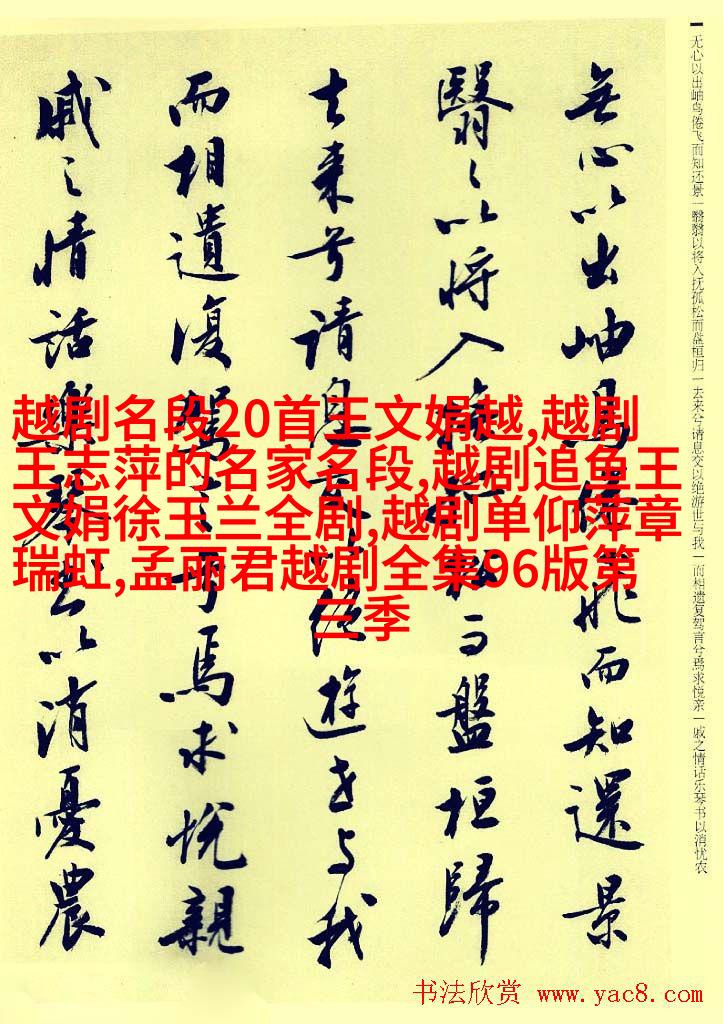 无心以出岫鸟倦飞而知还景一翳翳以将入抚孤松而盘桓归一去来兮请息交以绝游世与我一而相遗复驾言兮焉求悦亲一戚之情话乐琴书以消忧农
無心以出岫鳥倦飛而知還景
翳々以将入撫孤松而盤桓歸
去来兮请息交以絶遊世与我
而相遺復駕言兮焉求悦親
戚之情話樂琴書以消憂農
越剧名段20首王文娟越,越剧
王志萍的名家名段,越剧追鱼王
文娟徐玉兰全剧,越剧单仰萍章
瑞虹,孟丽君越剧全集96版第
三季
书法欣赏 www.yac8.com